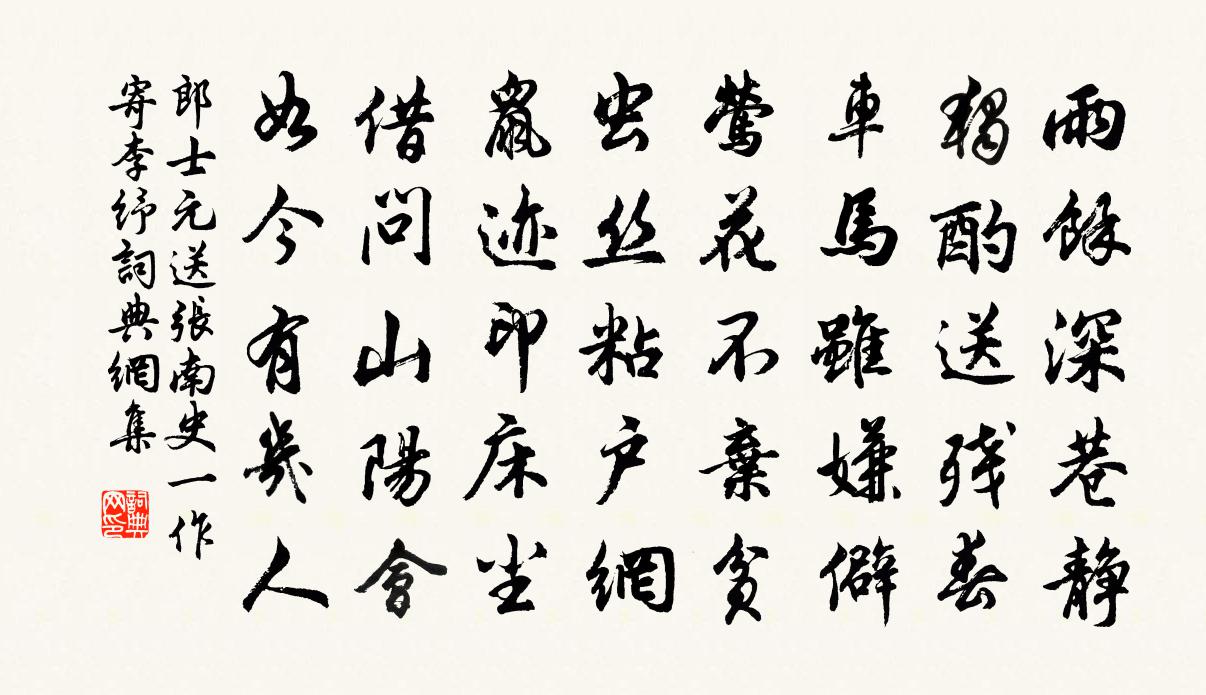 雨餘深巷静
獨酌送残春
車馬雖嫌僻
鶯花不棄貧
虫丝粘户網
鼠迹印床尘
借問山陽會
如今有幾人
郎士元送張南史一作
寄李紓詞典網集
詞典网印